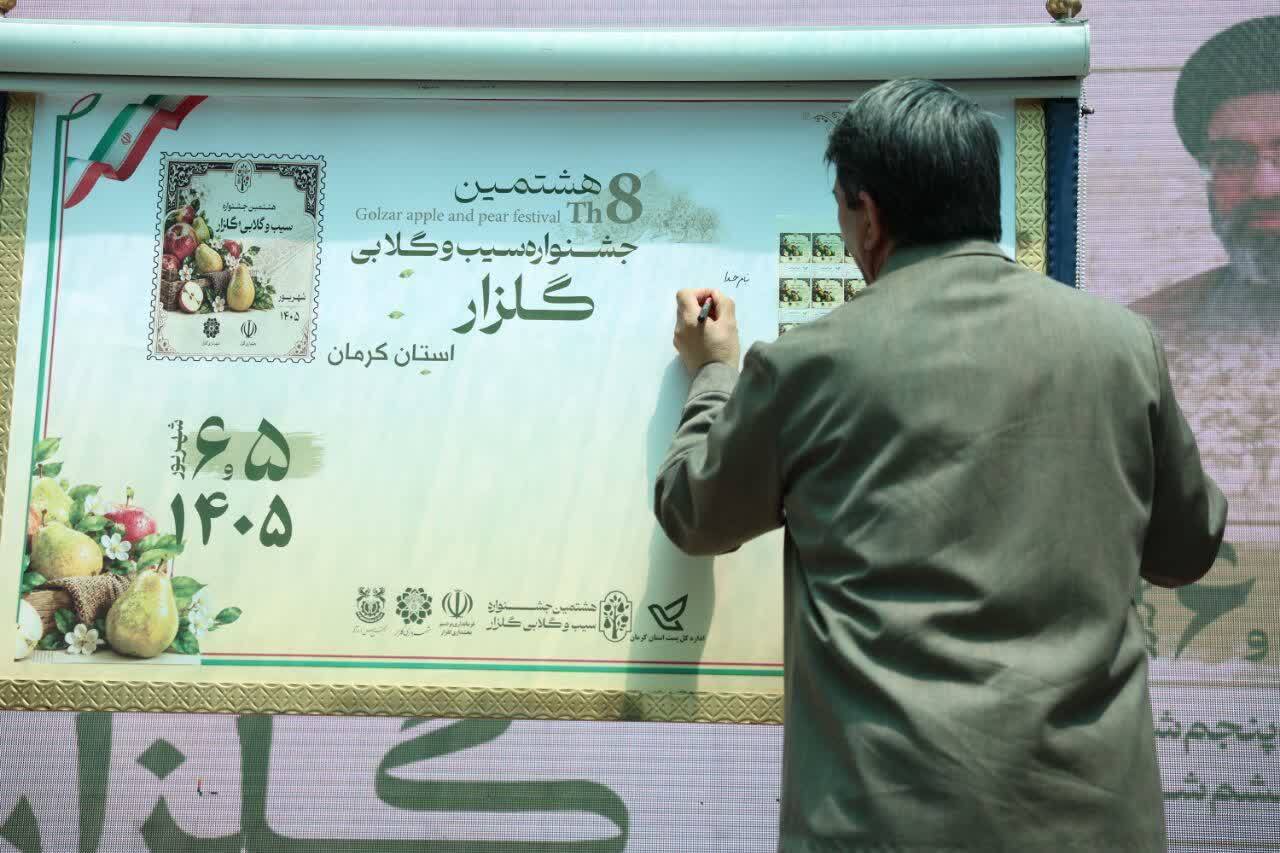 هشتمین
8Th
Golzar apple and pear festival
جشنواره سیب و گلابی
گلزار
استان کرمان
هشتمین جشنواره
سیب و گلابی گلزار
شهریور
۱۴۰۵
۵ و ۶
شهریور
۱۴۰۵
بنام خدا
هشتمین جشنواره
سیب و گلابی گلزار
اداره کل پست استان کرمان
گلزار
پنجم
و